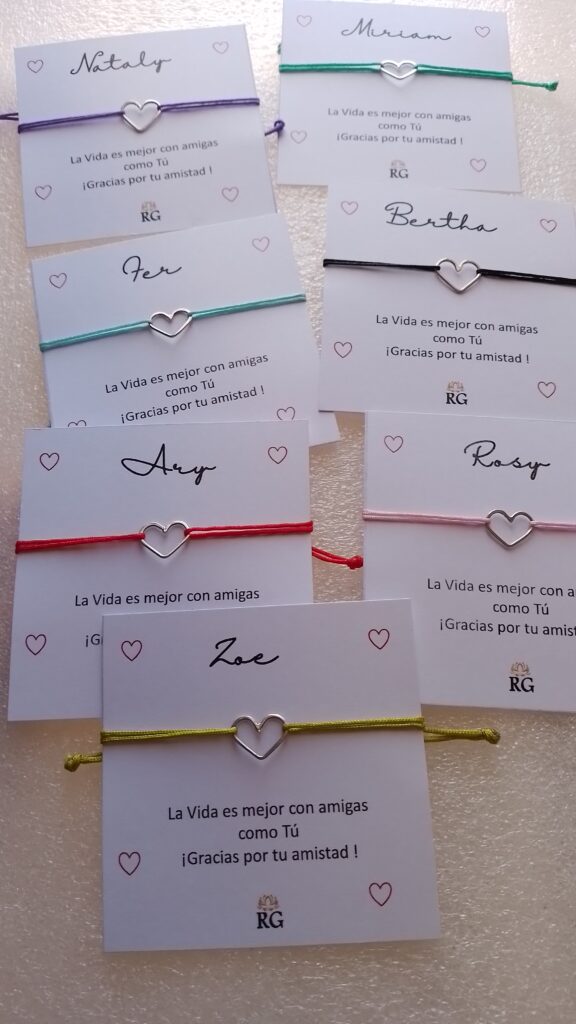 Nataly
La Vida es mejor con amigas
como Tú
¡Gracias por tu amistad !
RG
Miriam
La Vida es mejor con amigas
como Tú
¡Gracias por tu amistad !
RG
Fer
La Vida es mejor con amigas
como Tú
¡Gracias por tu amistad !
Bertha
La Vida es mejor con amigas
como Tú
¡Gracias por tu amistad !
RG
Ary
La Vida es mejor con amigas
¡G
Rosy
La Vida es mejor con a
como Tú
¡Gracias por tu amist
RG
Zoe
La Vida es mejor con amigas
como Tú
¡Gracias por tu amistad !
RG